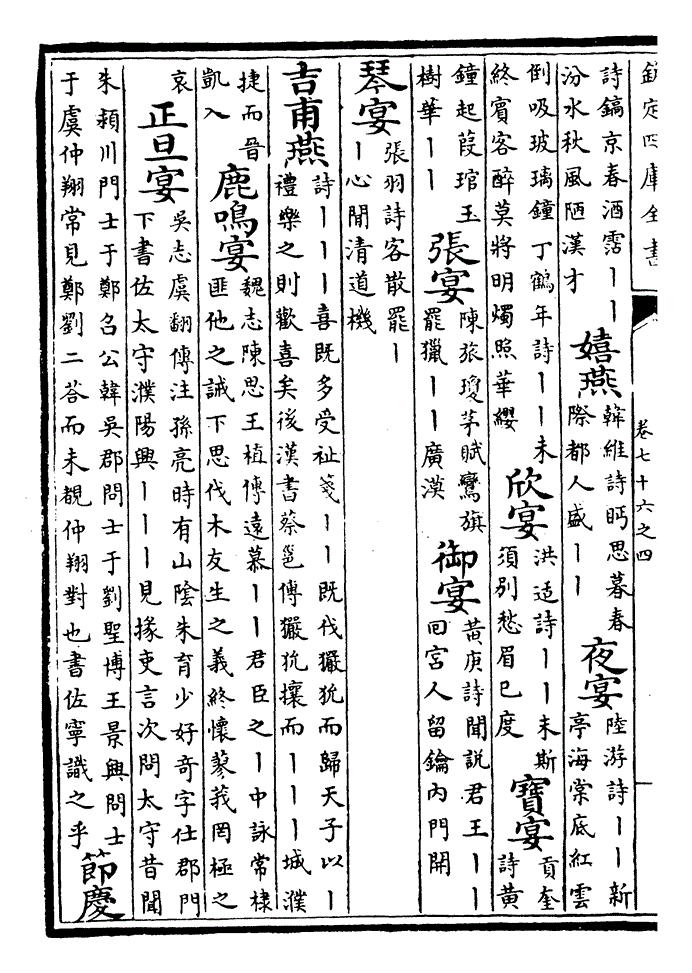 欽定四庫全書
卷七十六之四
詩鎬京春酒霑丨丨
汾水秋風陋漢才
嬉燕
韓維詩眄思暮春
際都人盛丨丨
夜宴
陸游詩丨丨新
亭海棠底紅雲
倒吸玻璃鐘丁鶴年詩丨丨未
終賓客醉莫將明燭照華纓
欣宴
洪适詩丨丨未斯
須別愁眉已度
寶宴
貢奎
詩黃
鐘起葭琯玉
樹華丨丨
張宴
陳旅瓊茅賦鸞旗
罷獵丨丨廣漠
御宴
黃庚詩聞説君王丨丨
回宮人留鑰內門開
琴宴
張羽詩客散罷丨
丨心閒清道機
吉甫燕
詩丨丨丨喜既多受祉箋丨丨既伐玁狁而歸天子以丨
禮樂之則歡喜矣後漢書蔡邕傳玁狁攘而丨丨丨城濮
捷而晉
凱入
鹿鳴宴
魏志陳思王植傳遠慕丨丨君臣之丨中詠常棣
匪他之誡下思伐木友生之義終懷蓼莪罔極之
哀
正旦宴
吳志虞翻傳注孫亮時有山陰朱育少好奇字仕郡門
下書佐太守濮陽興丨丨丨見掾吏言次問太守昔聞
朱潁川問士于鄭召公韓吳郡問士于劉聖博王景興問士
于虞仲翔常見鄭劉二荅而未覩仲翔對也書佐寧識之乎
節慶